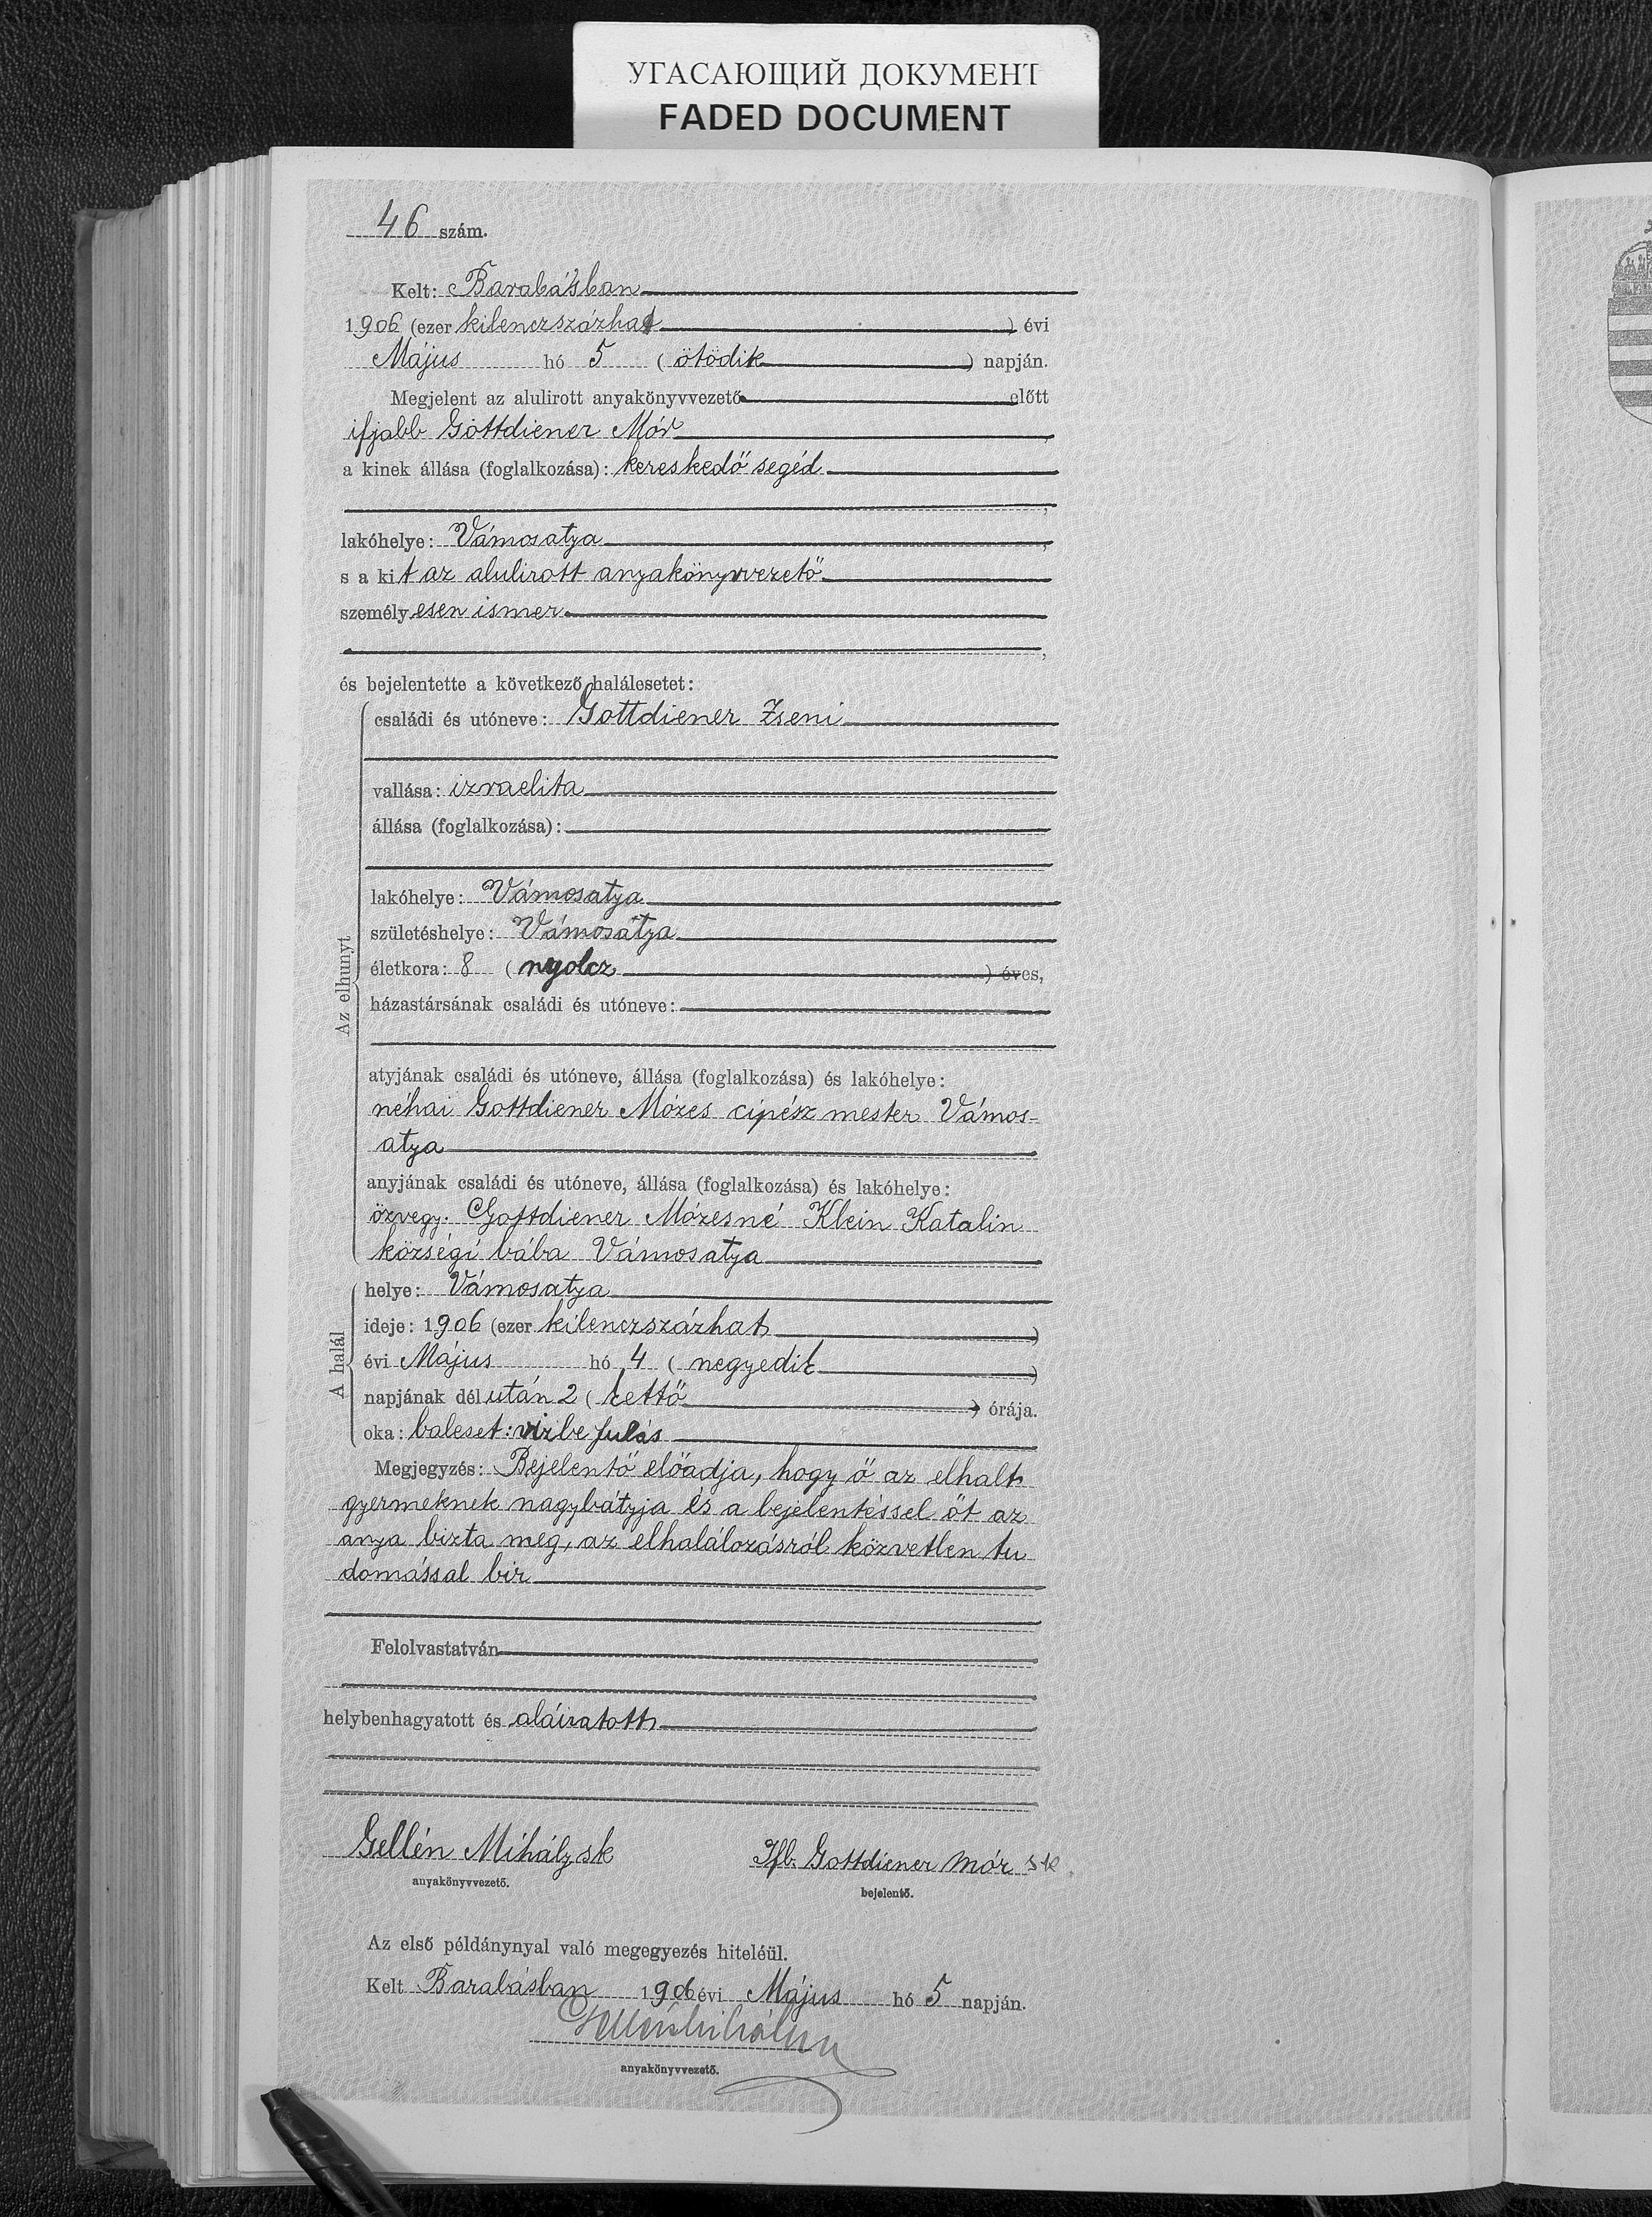 УГАСАЮЩИЙ ДОКУМЕНТ
FADED DOCUMENT
46 szám.
Kelt: Barabásban
1906 (ezer kilenczszázhat) évi
Május hó 5 (ötödik) napján.
Megjelent az alulirott anyakönyvvezető előtt
ifjabb Gottdiener Mór,
a kinek állása (foglalkozása): kereskedő segéd
,
lakóhelye: Vámosatya,
s a kit az alulirott anyakönyvvezető
személyesen ismer
,
és bejelentette a következő halálesetet:
Az elhunyt
családi és utóneve: Gottdiener Zseni
vallása: izraelita
állása (foglalkozása):
lakóhelye: Vámosatya
születéshelye: Vámosatya
életkora: 8 (nyolcz) éves,
házastársának családi és utóneve:
atyjának családi és utóneve, állása (foglalkozása) és lakóhelye:
néhai Gottdiener Mózes cipész mester Vámos-
atya
anyjának családi és utóneve, állása (foglalkozása) és lakóhelye:
özvegy. Gottdiener Mózesné Klein Katalin
községi bába Vámosatya
A halál
helye: Vámosatya
ideje: 1906 (ezer kilenczszázhat)
évi Május hó 4 (negyedik)
napjának délután 2 (kettő) órája.
oka: baleset: vizbe fulás
Megjegyzés: Bejelentő előadja, hogy ő az elhalt
gyermeknek nagybátyja és a bejelentéssel őt az
anya bizta meg, az elhalálozásról közvetlen tu
domással bir
Felolvastatván
helybenhagyatott és aláiratott
Gellén Mihály sk
anyakönyvvezető.
Ifb. Gottdiener Mór sk.
bejelentő.
Az első példánynyal való megegyezés hiteléül.
Kelt Barabásban 1906 évi Május hó 5 napján.
Gellén Mihály
anyakönyvvezető.